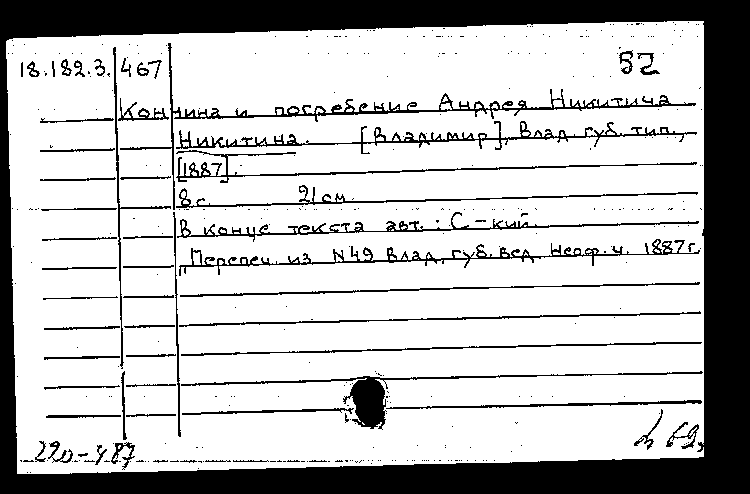 18.182.3. 467 52
Кончина и погребение Андрея Никитича
Никитина. [Владимир], Влад. губ. тип.,
[1887].
8 с. 21 см.
В конце текста авт.: С-кий.
"Перепеч. из N49 Влад. губ. вед. Неоф. ч. 1887 г.